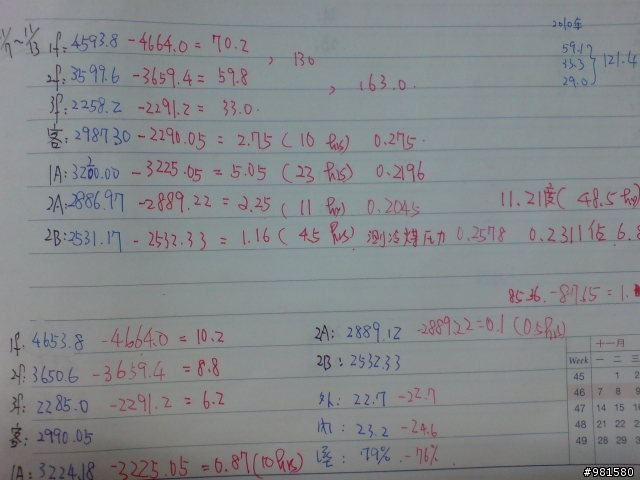 11/7~11/13 1f: 4593.8 -4664.0 = 70.2
2010年
2f: 3599.6 -3659.4 = 59.8 , 130
59.1
33.3 } 121.4
29.0
3f: 2258.2 -2291.2 = 33.0 , 163.0
客: 2987.30 -2290.05 = 2.75 (10 hrs) 0.275
1A: 3220.00 -3225.05 = 5.05 (23 hrs) 0.2196
2A: 2886.97 -2889.22 = 2.25 (11 hrs) 0.2045 11.21度 (48.5 hrs)
2B: 2531.17 -2532.33 = 1.16 (4.5 hrs) 測冷煤压力 0.2578 0.2311 佔 6.8
8536. -87.15 = 1.
1f: 4653.8 -4664.0 = 10.2 2A: 2889.12 -2889.22 = 0.1 (0.5 hrs)
2f: 3650.6 -3659.4 = 8.8 2B: 2532.33
3f: 2285.0 -2291.2 = 6.2 外: 22.7 -22.7
客: 2990.05 內: 23.2 -24.6
1A: 3224.18 -3225.05 = 0.87 (10 hrs) 溼: 79% -76%
十一月
Week 一 二 三
45 1 2
46 7 8 9
47 14 15 16
48 21 22 2
49 28 29 3
#981580